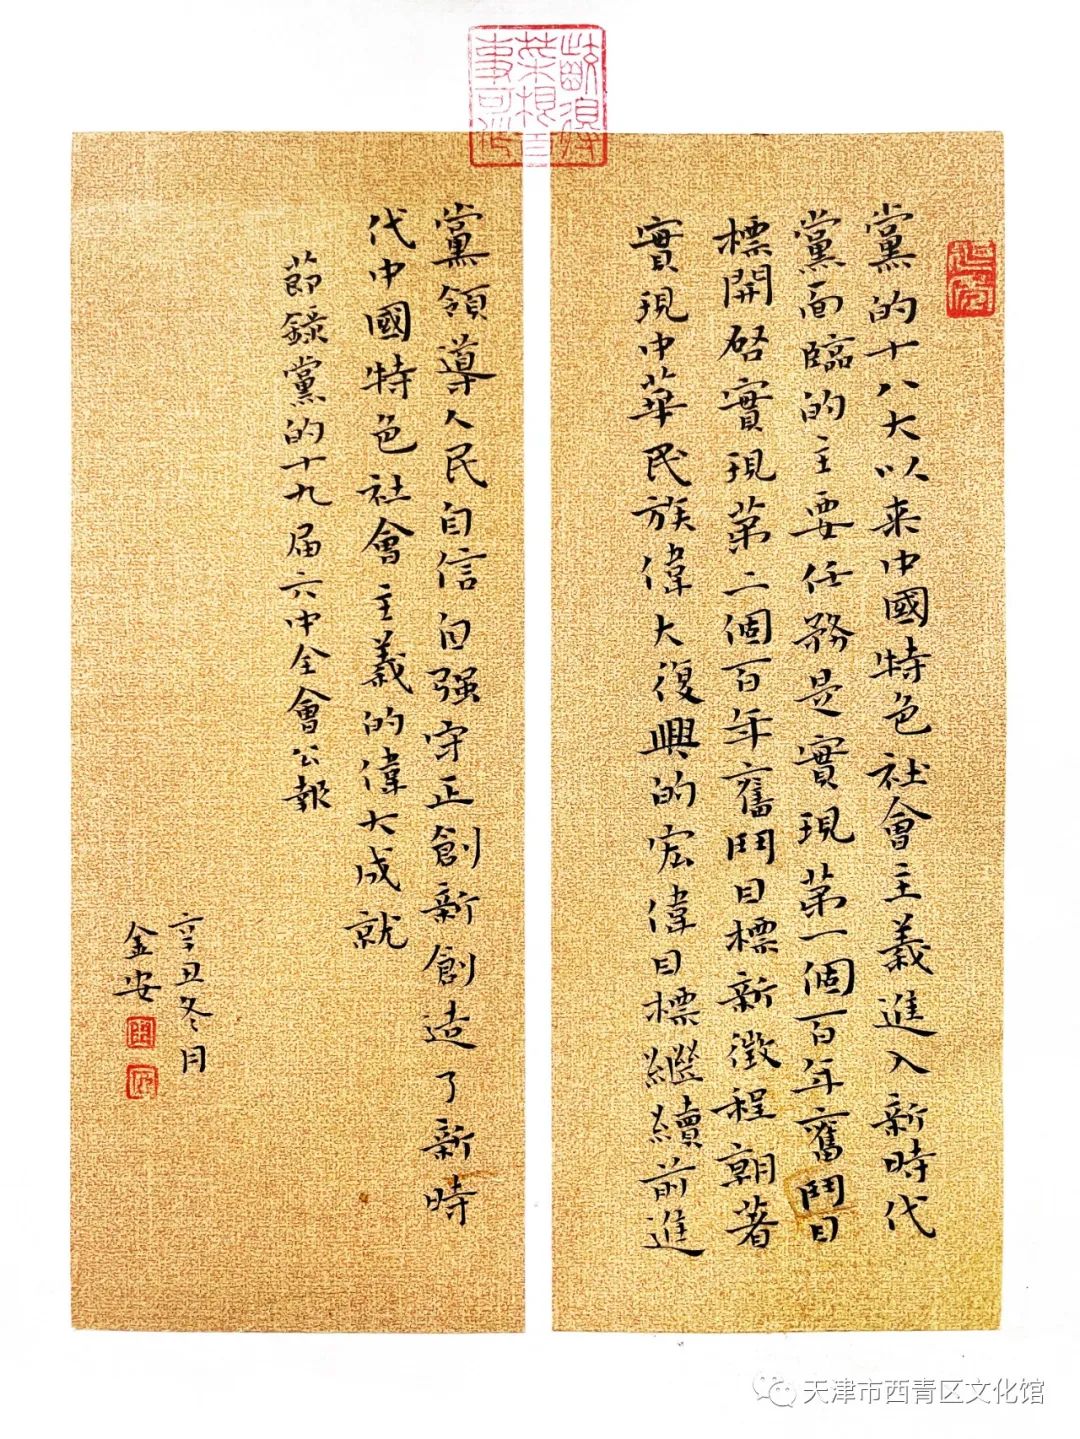 黨的十八大以来中國特色社會主義進入新時代
黨面臨的主要任務是實現第一個百年奮鬥目
標開啓實現第二個百年奮鬥目標新徵程朝著
實現中華民族偉大復興的宏偉目標繼續前進
黨領導人民自信自强守正創新創造了新時
代中國特色社會主義的偉大成就
節錄黨的十九届六中全會公報
辛丑冬月
金安
天津市西青区文化馆